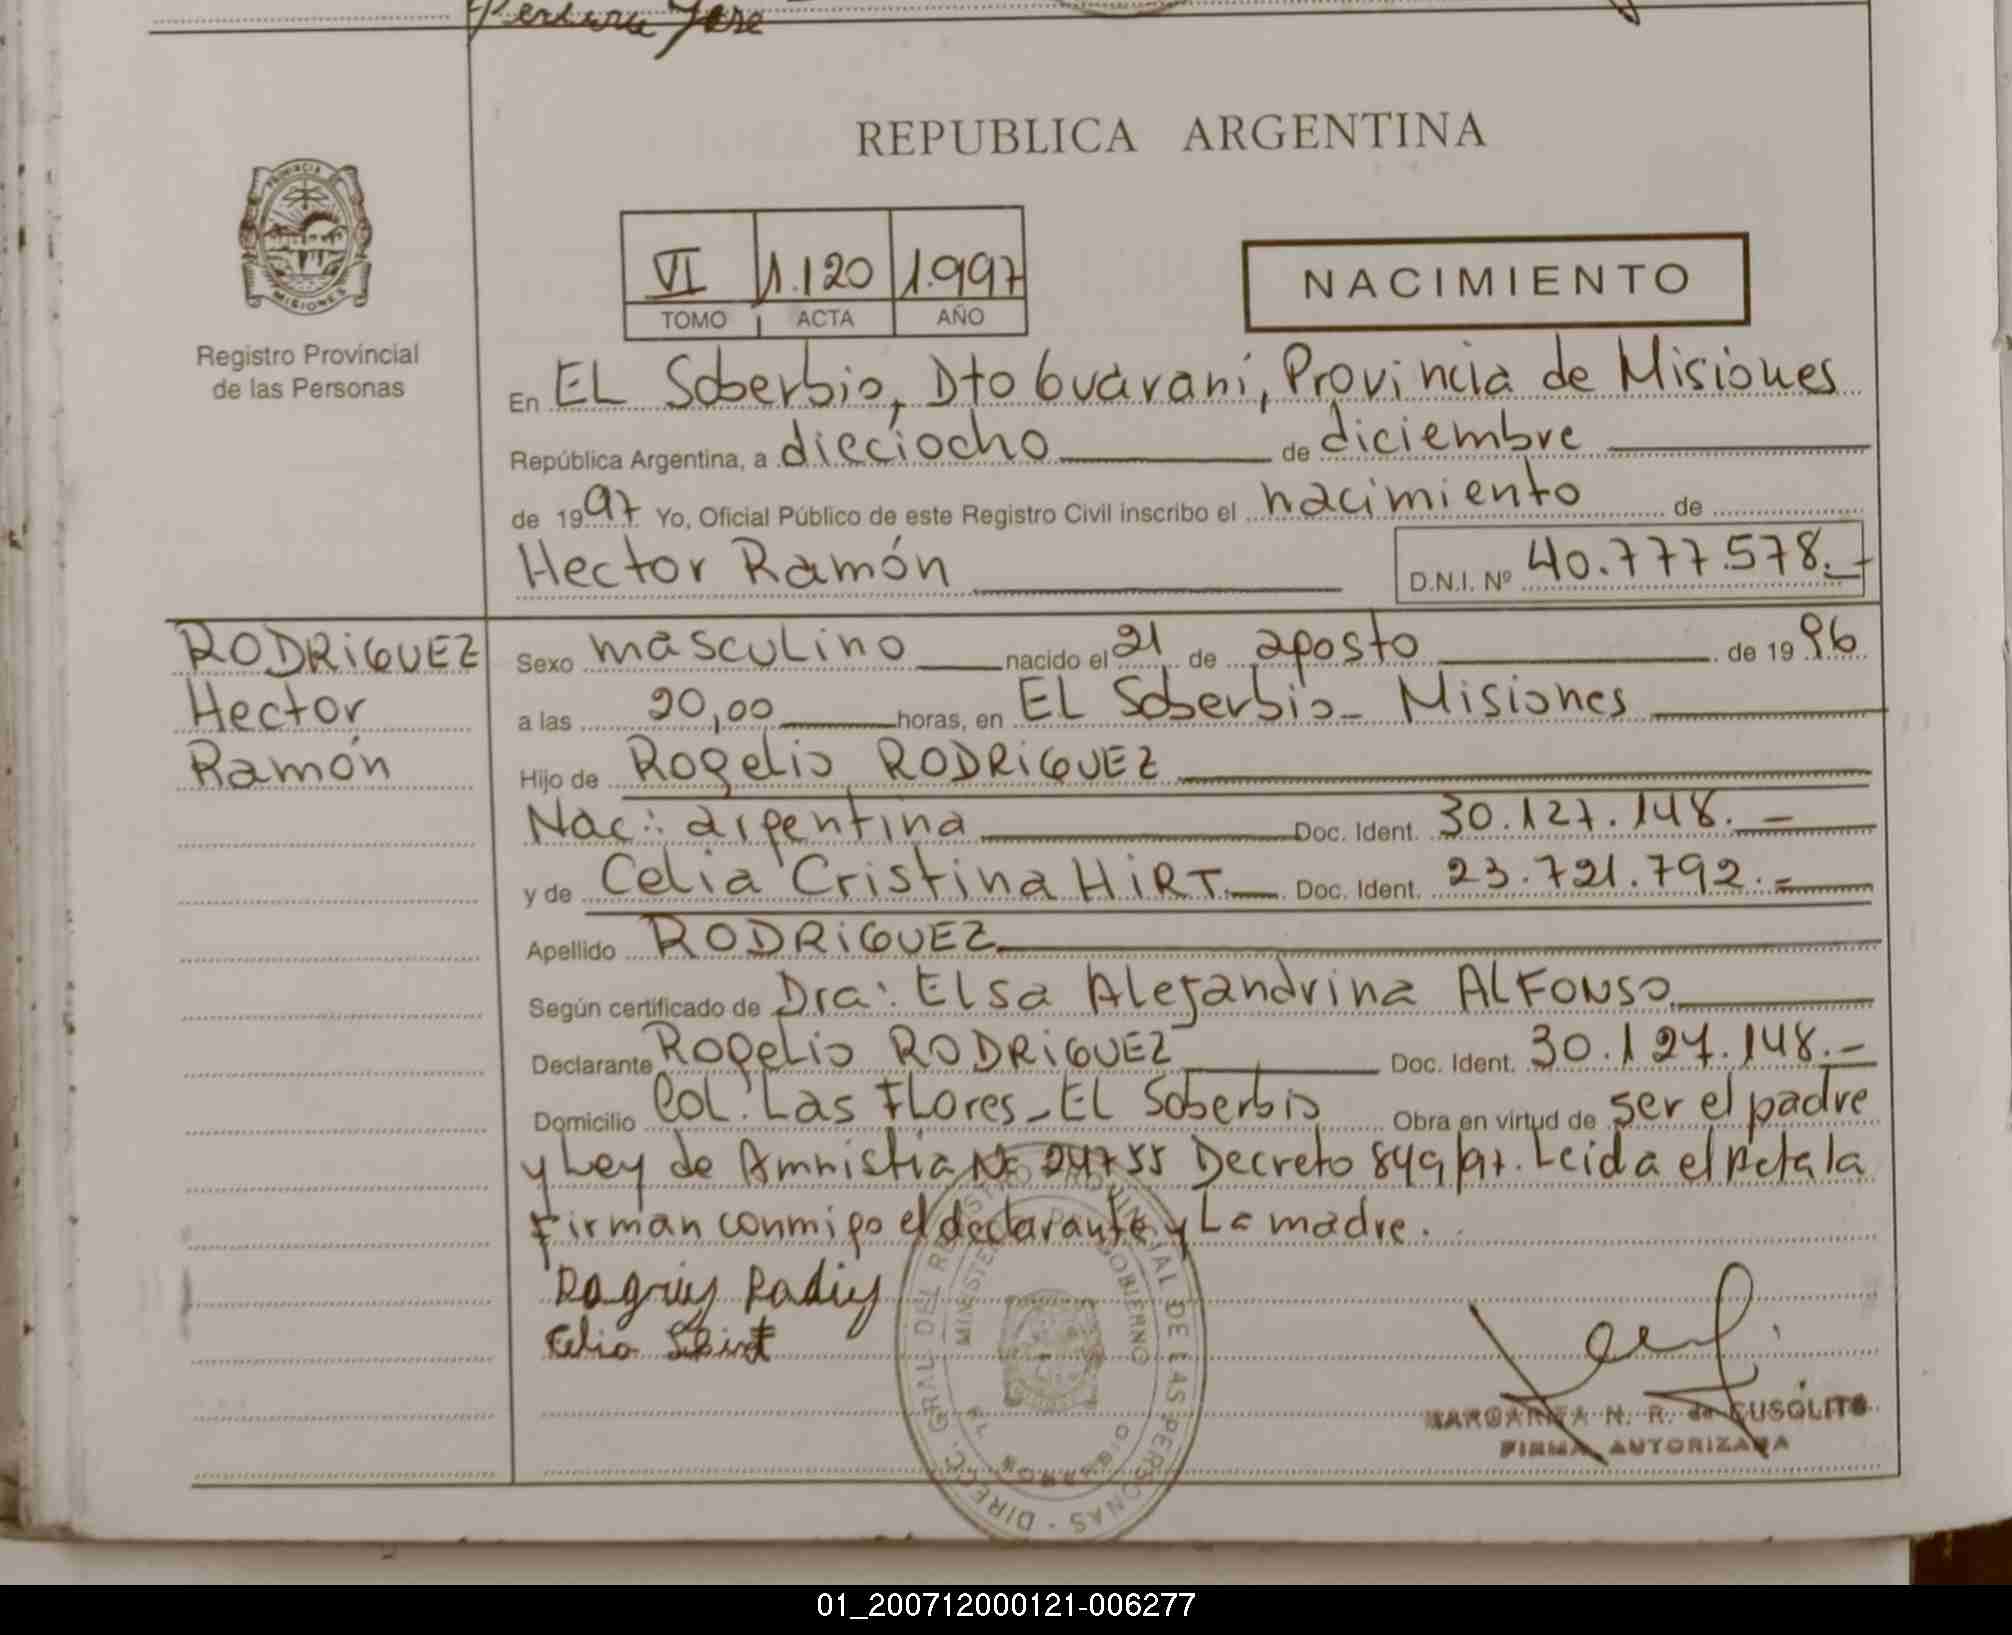 Jose
REPUBLICA ARGENTINA
PROVINCIA DE
MISIONES
VI 1.120 1.997
TOMO ACTA AÑO
NACIMIENTO
Registro Provincial
de las Personas
En EL Soberbio, Dto Guaraní, Provincia de Misiones
República Argentina, a dieciocho de diciembre
de 1997 Yo, Oficial Público de este Registro Civil inscribo el nacimiento de
Hector Ramón D.N.I. Nº 40.777.578.-
RODRIGUEZ
Hector
Ramón
Sexo masculino nacido el 21 de agosto de 1996
a las 20,00 horas, en EL Soberbio - Misiones
Hijo de Rogelio RODRIGUEZ
Nac:. argentina Doc. Ident. 30.127.148.-
y de Celia Cristina HIRT.- Doc. Ident. 23.721.792.-
Apellido RODRIGUEZ
Según certificado de Dra: Elsa Alejandrina ALFONSO
Declarante Rogelio RODRIGUEZ Doc. Ident. 30.127.148.-
Domicilio Col. Las Flores - EL Soberbio Obra en virtud de ser el padre
y Ley de Amnistia Nº 24755 Decreto 849/97. Leida el Acta la
firman conmigo el declarante y La madre.
Celia
DIRECC. GRAL. DEL REGISTRO PROVINCIAL DE LAS PERSONAS -
MINISTERIO DE GOBIERNO
EL SOBERBIO
MARGARITA N. R. de CUSOLITO
FIRMA AUTORIZADA
01_200712000121-006277